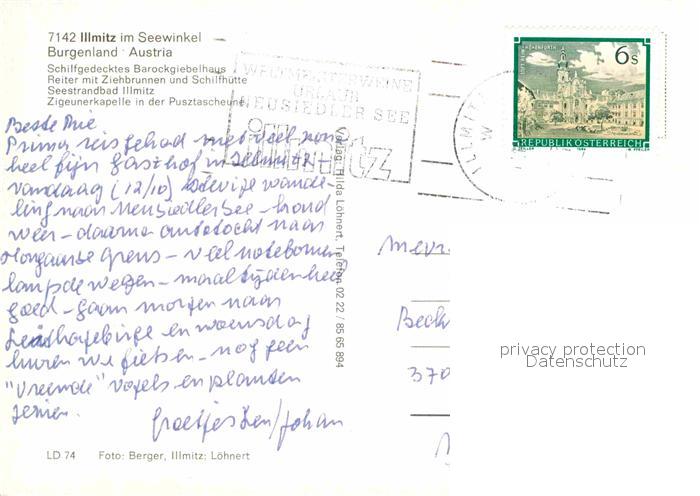 7142 Illmitz im Seewinkel
Burgenland · Austria
Schilfgedecktes Barockgiebelhaus
Reiter mit Ziehbrunnen und Schilfhütte
Seestrandbad Illmitz
Zigeunerkapelle in der Pusztascheune
WELTMEISTERWEINE
URLAUB
NEUSIEDLER SEE
illmitz
ILLMITZ
STIFT REIN-HOHENFURTH
6 S
REPUBLIK ÖSTERREICH
Beste Mie
Prima reis gehad met veel zon
heel fijn gasthof in Illmitz -
vandaag (12/10) stevige wande-
ling naar Neusiedlersee - hond
weer - daarna autotocht naar
Hongaarse grens - veel notebomen
langs de wegen - maaltijden heel
goed - gaan morgen naar
Leithagebirge en woensdag
huren we fietsen - nog geen
"vreemde" vogels en planten
gezien.
Groetjes Len/Johan
Verlag: Hilda Löhnert, Telefon 02 22 / 85 65 894
Mevr.
Bech
370
privacy protection
Datenschutz
LD 74 Foto: Berger, Illmitz; Löhnert